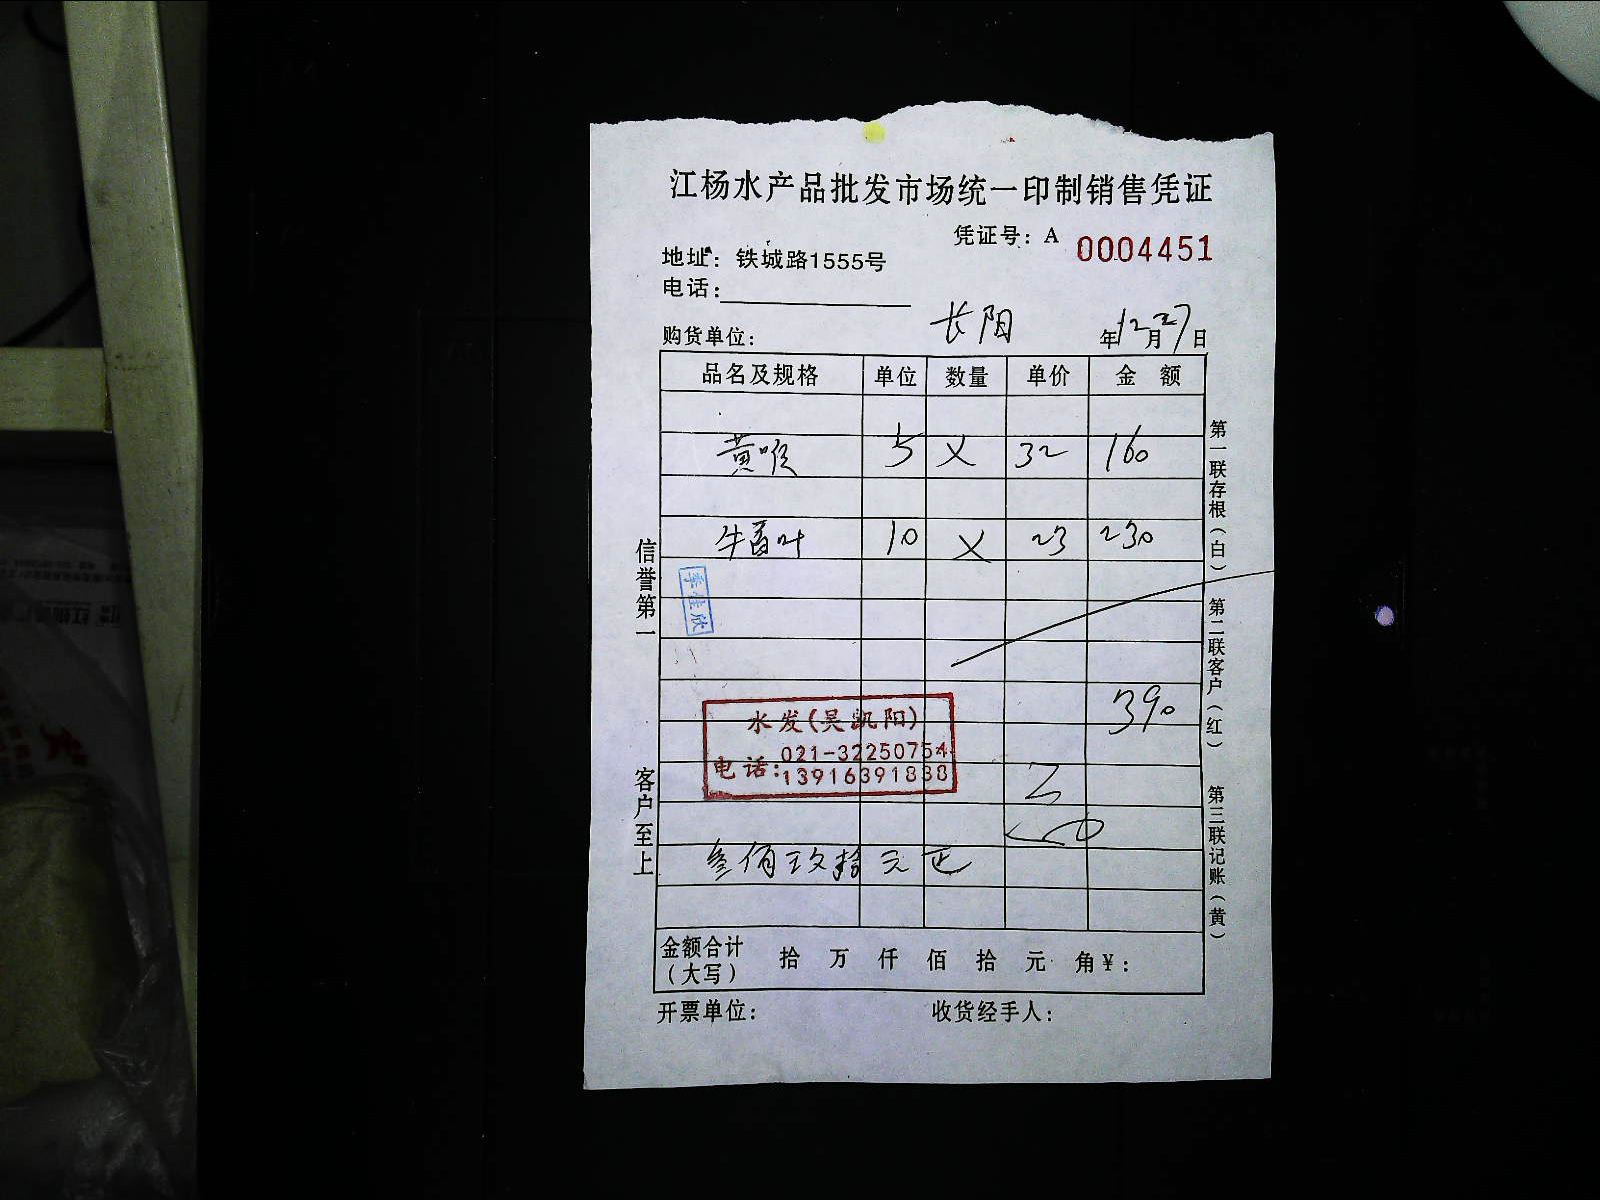 江杨水产品批发市场统一印制销售凭证
凭证号：A 0004451
地址：铁城路1555号
电话：
购货单位： 长阳 年12月27日
品名及规格 单位 数量 单价 金 额
黄喉 5 × 32 160
牛百叶 10 × 23 230
李佳欣
390
水发(吴凯阳)
电话：021-32250754
13916391838
叁佰玖拾元正
金额合计（大写） 拾 万 仟 佰 拾 元 角￥：
开票单位： 收货经手人：
信誉第一
客户至上
第一联存根（白）
第二联客户（红）
第三联记账（黄）